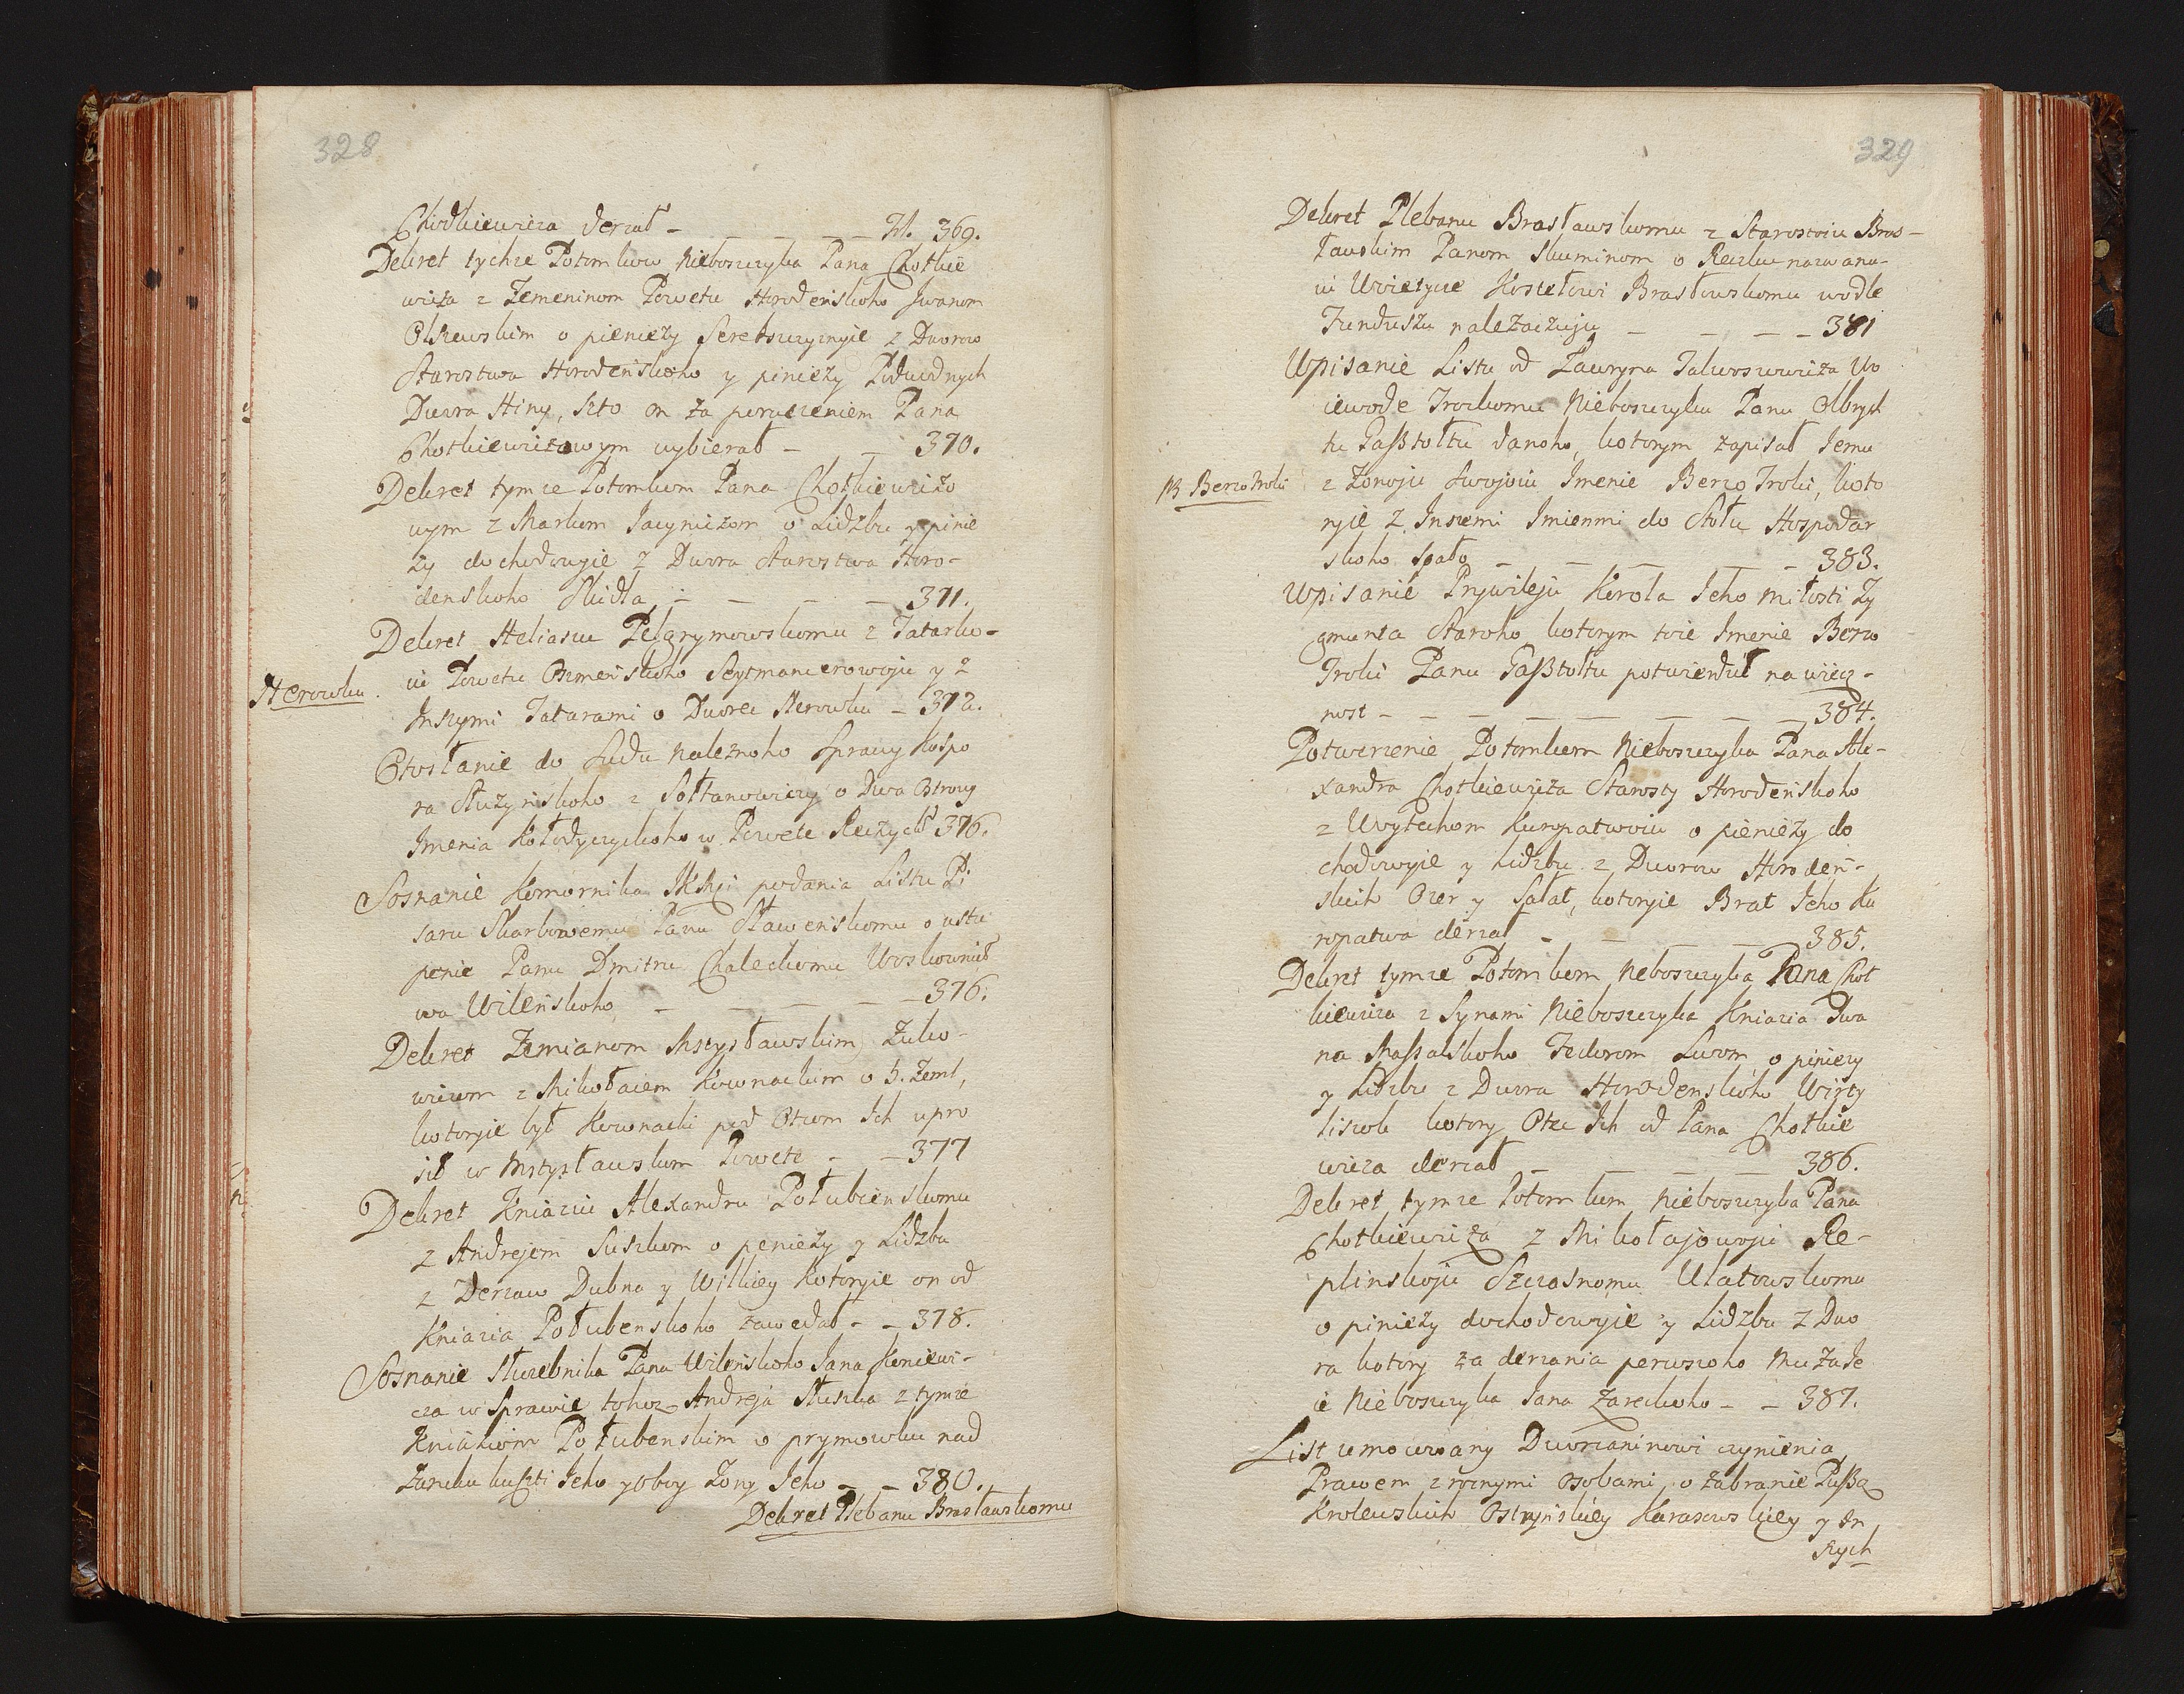 328
Chodkiewicza derzał - - - - - Fol. 369.
Dekret tychże Potomkow Nieboszczyka Pana Chotkie
wiża z Zemeninom Powetu Horodeńskoho Jwanom
Olszewskim o pienieży Serebszczyznyie z Dworow
Starostwa Horodeńskoho y pinieży Podwodnych
Dwora Hiny, szto on za poruczeniem Pana
Chotkiewiżowym wybierał - - 370.
Dekret tymże Potomkom Pana Chotkiewiżo
wym z Markom Jacyniżom o Lidżbu y pinie
ży dochodowyie z Dwora Starostwa Horo-
denskoho Skidla - - - - 371.
Dekret Heliaszu Pelgrymowskomu z Tatarko-
iu Powetu Oszmeńskoho Seytmancerowoju y z
Inszymi Tatarami o Dworec Nerowku - 372.
Nerowku.
Otosłanie do Sudu należnoho Sprawy Kaspo
ra Kłużyńskoho z Sołtanowiczy o Dwa Ostrowy
Jmenia Kołodyczyckoho w Powete Reżyck 376.
Soznanie Komornika JKMci podania Listu Pi
saru Skarbowemu Panu Stawenskomu o ustu
penie Panu Dmitru Chaleckomu Woskownict
wa Wilenskoho - - - - 376.
Dekret Zemianom Mscysławskim Żuko-
wiczom z Mikołaiem Kownackim o 5. Zeml,
kotoryie był Kownacki pod Otcom Jch upro
sił w Mstysławskom Powete - - 377
Dekret Kniaziu Alexandru Połubienskomu
z Andrejem Suszkom o penieży y Lidżbu
z Derżaw Dubna y Wilkiey kotoryie on od
Kniazia Połubenskoho zawedał - - 378.
Soznanie Służebnika Pana Wileńskoho Jana Koniewi-
cza w Sprawie tohoż Andreja Słuszka z tymże
Kniaziom Połubenskim o prymowku nad
Zamku ludzti Jeho y oboy Żony Jeho - - 380.
Dekret Plebanu Brasławskomu
329
Dekret Plebanu Brasławskomu z Starostoiu Bras-
ławskim Panom Skuminom o Reczku nazwanu-
iu Uwietycie Kostełowi Brasławskomu wodle
Funduszu należaczuju - - - - 381
Upisanie Listu od Ławryna Talwoszewiża Wo
iewode Trockomu Nieboszczyku Panu Olbrych
tu Gaßtołtu danoho, kotorym zapisał Jemu
z Żonoju Swojoiu Jmenie Berzo Troki, koto
NB Berzo Troki
ryie z Jnszemi Jmienmi do Stołu Hospodar
skoho spało - - - - 383.
Upisanie Prywileju Korola Jeho Miłosti Zy
gmunta Staroho, kotorym toie Jmenie Berzo
Troki Panu Gaßtołtu potwierdił na wiecz-
nost - - - - - - - 384.
Potwerzenie Potomkom Nieboszczyka Pana Ale-
xandra Chotkiewiża Starosty Horodeńskoho
z Woytechom Kuropatwoiu o pienieży do
chodowyie y Lidżbu z Dworow Horoden-
skich Ozer y Salat, kotoryie Brat Jeho Ku
ropatwa derzał - - - 385.
Dekret tymże Potomkom Neboszczyka Pana Chot
kiewiża z Synami Nieboszczyka Kniazia Jwa
na Maßalskoho Fedorom Lwom o pinieży
y Lidżbu z Dwora Horodenskoho Wirty
liszek kotory Otec Jch od Pana Chotkie
wiża derzał - - - 386.
Dekret tymże Potomkom Nieboszczyka Pana
Chotkiewiża z Mikołajowoju Re-
plinskoju Szczasnomu Ulatowskomu
o pinieży dochodowyie y Lidżbu z Dwo
ra kotory za derzania perwszoho Muża Je
ie Nieboszczyka Jana Zareckoho - - 387.
List umocowany Dworzaninowi czynienia
Prawem z roznymi Osobami, o zabranie Pußcz
Krolewskich Ostryńskiey Karasowskiey y In
szych